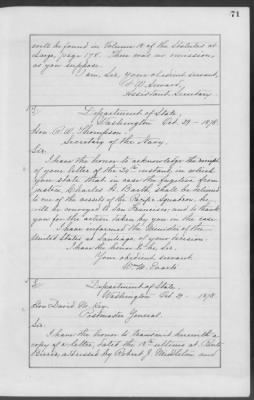 71
will be found in Volume 18 of the Statutes at
Large, page 178. There was no omission,
as you suppose.
I am, Sir, Your obedient servant,
F. W. Seward,
Assistant Secretary.
Department of State,
Washington Oct. 29 - 1878.
Hon. R. W. Thompson.
Secretary of the Navy.
Sir:
I have the honor to acknowledge the receipt
of your letter of the 26th instant, in which
you state that in case the fugitive from
justice, Charles G. Barth, shall be delivered
to one of the vessels of the Pacific Squadron, he
will be conveyed to San Francisco, and to thank
you for the action taken by you in the case.
I have informed the Minister of the
United States at Santiago, of your decision.
I have the honor to be, Sir,
Your obedient servant
Wm. M. Evarts
Department of State.
Washington Oct. 29. - 1878.
Hon David M. Key,
Postmaster General.
Sir:
I have the honor to transmit herewith a
copy of a letter, dated the 12th ultimo, at
addressed by Robert J. and